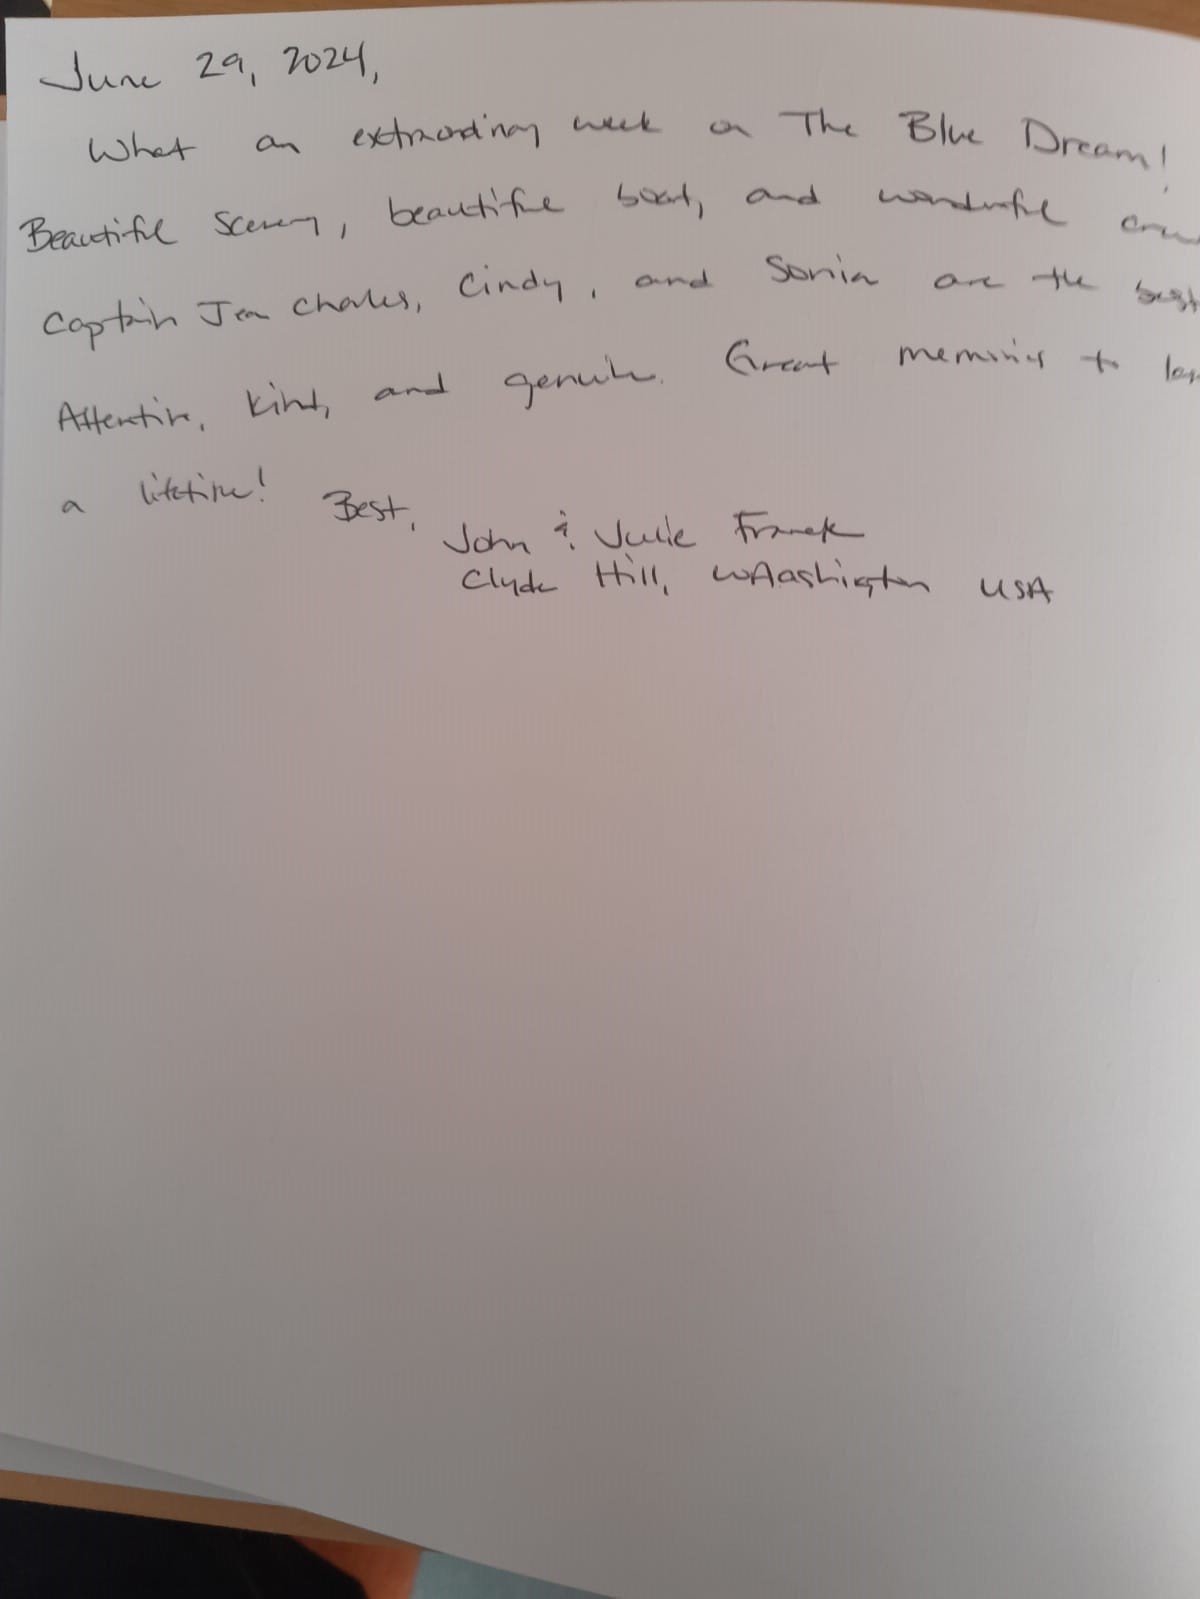 June 29, 2024,
What an extraordinary week on The Blue Dream!
Beautiful scenery, beautiful boat, and wonderful crew
Captain Jean Charles, Cindy, and Sonia are the best
Attentive, kind, and genuine. Great memories to
a lifetime! Best,
John & Julie
Clyde Hill, WAashington USA